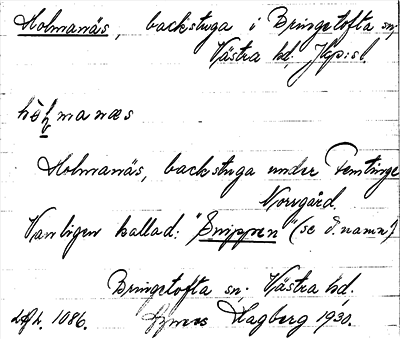 Holmanäs, backstuga i Bringetofta sn,
Västra hd, Jkp:s l.
Holmanäs, backstuga under
Norrgård
Vanligen kallad: "Snippen" (se d. namn)
Bringetofta sn. Västra hd.
1086. Hagberg 1930.